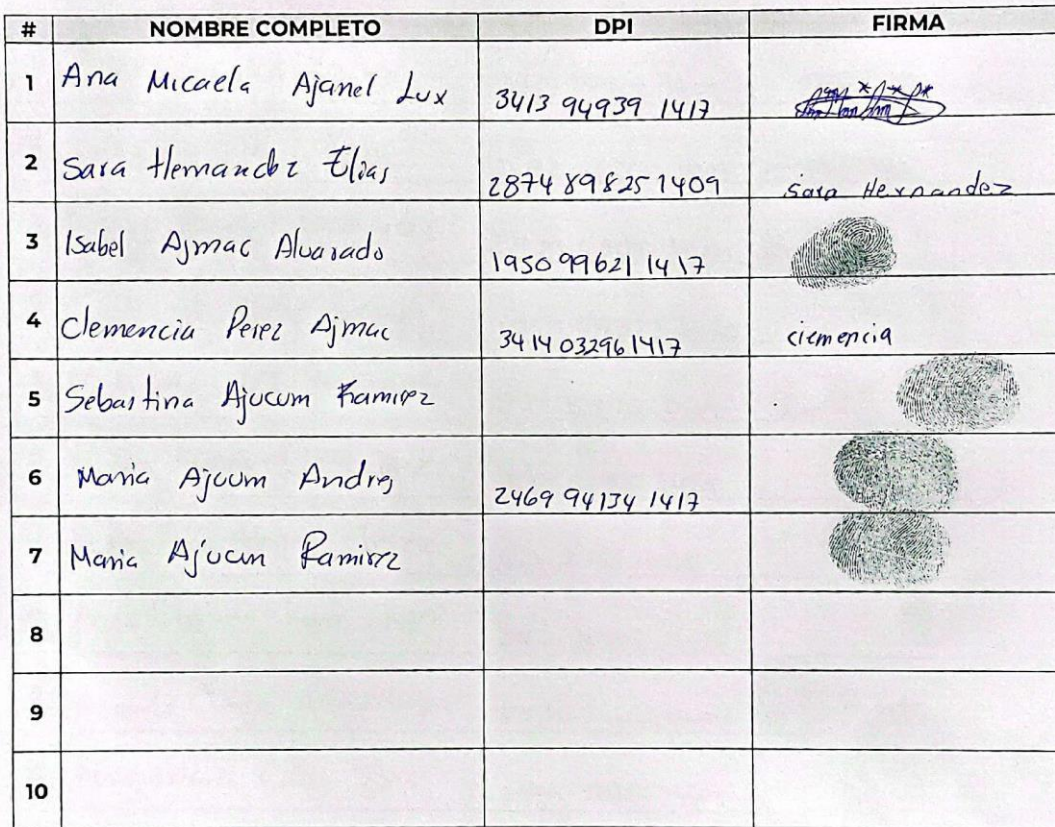 # NOMBRE COMPLETO DPI FIRMA
1 Ana Micaela Ajanel Lux 3413 94939 1417
2 Sara Hernandez Elias 2874 89825 1409 sara Hernandez
3 Isabel Ajmac Alvarado 1950 99621 1417
4 Clemencia Perez Ajmac 3414 03296 1417 clemencia
5 Sebastina Ajucum Ramirez
6 Maria Ajucum Andres 2469 94134 1417
7 Maria Ajucum Ramirez
8
9
10